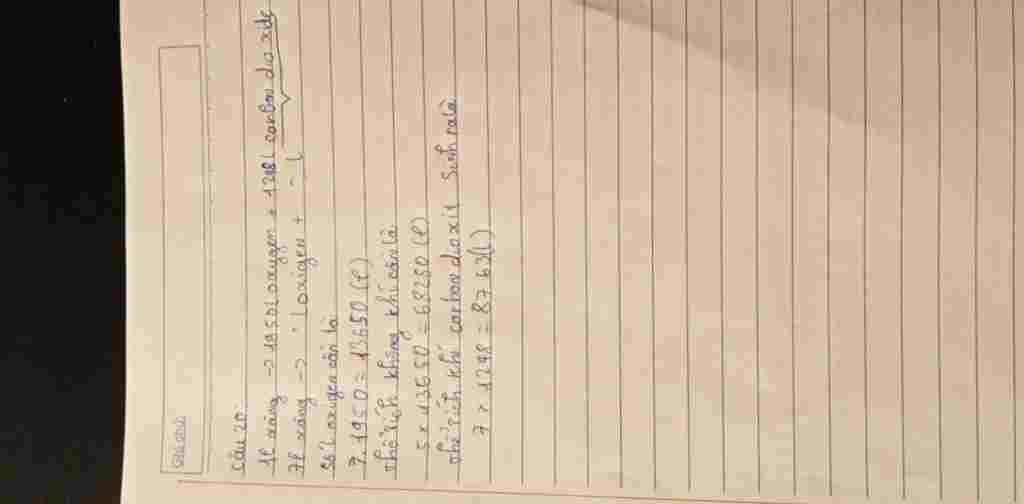 Ghi chú:
Câu 20
1l xăng -> 1950l oxygen + 1248l carbon dioxide
7l xăng -> ? l oxigen + - l
Số l oxygen cần là
7.1950 = 13650 (l)
thể tích không khí cần là
5 x 13650 = 68250 (l)
thể tích khí carbon dioxit sinh ra là
7 x 1248 = 8763 (l)